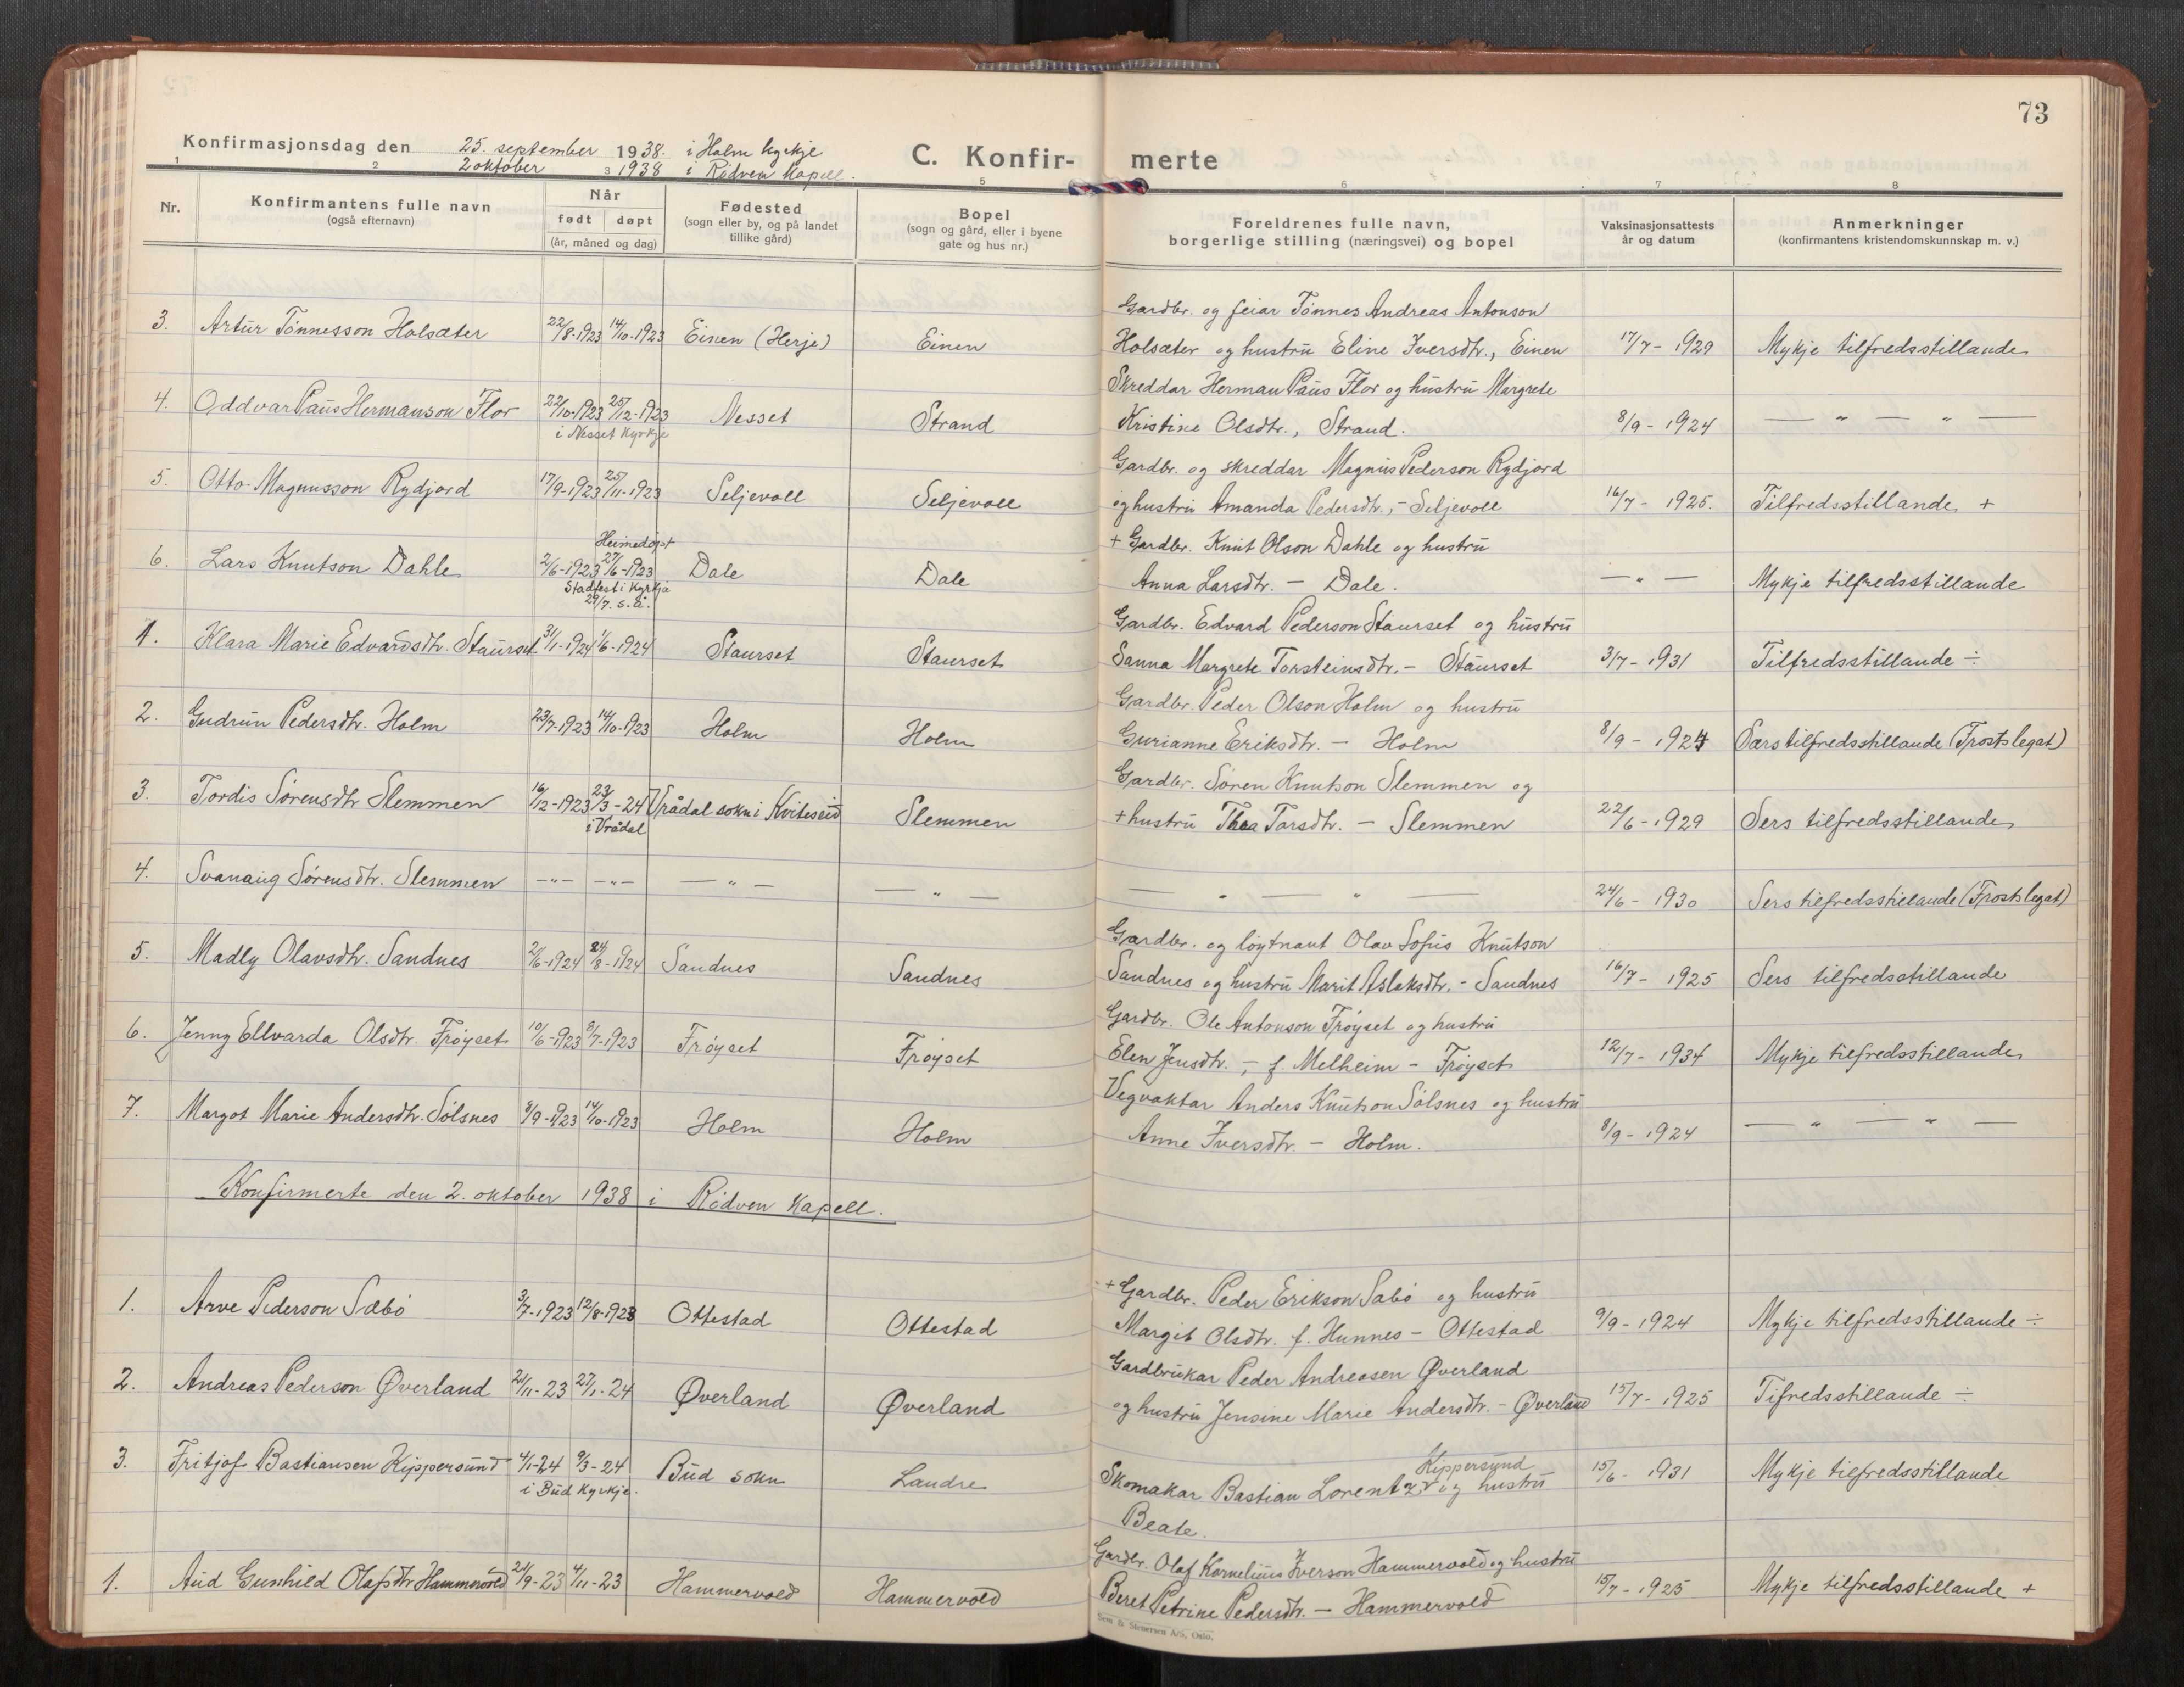 73
Konfirmasjonsdag den 25. september 1938. i Holm kyrkje
2 oktober 1938 i Rödven Kapell.
C. Konfir- merte
1 2 3 5 6 7 8
Nr.
Konfirmantens fulle navn
(også efternavn)
Når
født døpt
(år, måned og dag)
Fødested
(sogn eller by, og på landet
tillike gård)
Bopel
(sogn og gård, eller i byene
gate og hus nr.)
Foreldrenes fulle navn,
borgerlige stilling (næringsvei) og bopel
Vaksinasjonsattests
år og datum
Anmerkninger
(konfirmantens kristendomskunnskap m. v.)
Gardbr. og feiar Tönnes Andreas Antonson
3. Artur Tönnesson Holsæter 22/8-1923 14/10-1923 Einen (Herje) Einen Holsæter og hustru Eline Iversdtr., Einen 17/7 - 1929 Mykje tilfredsstillande
Skreddar Herman Paus Flor og hustru Margrete
4. Oddvar Paus Hermanson Flor 22/10-1923 25/12-1923 Nesset Strand Kristine Olsdtr., Strand. 8/9 - 1924 — " — " —
i Nesset kyrkje
Gardbr. og skreddar Magnus Pederson Rydjord
5. Otto Magnusson Rydjord 17/9-1923 25/11-1923 Seljevoll Seljevoll og hustru Amanda Pedersdtr., - Seljevoll 16/7 - 1925. Tilfredsstillande +
Heimedöpt
+ Gardbr. Knut Olson Dahle og hustru
6. Lars Knutson Dahle 2/6-1923 27/6-1923 Dale Dale Anna Larsdtr. - Dale. — " — Mykje tilfredsstillande
Stadfest i kyrkja
29/7. s. å.
Gardbr. Edvard Pederson Staurset og hustru
1. Klara Marie Edvardsdtr. Staurset 31/1-1924 1/6-1924 Staurset Staurset Sanna Margrete Torsteinsdtr. - Staurset 3/7 - 1931 Tilfredsstillande ÷
Gardbr. Peder Olson Holm og hustru
2. Gudrun Pedersdtr. Holm 23/7-1923 14/10-1923 Holm Holm Gurianne Eriksdtr. - Holm 8/9 - 1924 Særs tilfredsstillande (Frosts legat)
Gardbr. Sören Knutson Slemmen og
3. Tordis Sörensdtr Slemmen 16/12-1923 23/3-24 Vrådal sokn i Kviteseid Slemmen + hustru Thea Tarsdtr. - Slemmen 22/6 - 1929 Sers tilfredsstillande
i Vrådal
4. Svanaug Sörensdtr. Slemmen -"- -"- — " — — " — — " — " — 24/6 - 1930 Sers tilfredsstillande (Frosts legat)
Gardbr. og löytnant Olav Sofus Knutson
5. Madly Olavsdtr. Sandnes 2/6-1924 24/8-1924 Sandnes Sandnes Sandnes og hustru Marit Aslaksdtr. - Sandnes 16/7 - 1925 Sers tilfredsstillande
Gardbr. Ole Antonson Fröyset og hustru
6. Jenny Ellvarda Olsdtr. Fröyset 10/6-1923 8/7-1923 Fröyset Fröyset Elen Jensdtr., f. Melheim - Fröyset 12/7 - 1934 Mykje tilfredsstillande
Vegvaktar Anders Knutson Sölsnes og hustru
7. Margot Marie Andersdtr. Sölsnes 8/9-1923 14/10-1923 Holm Holm Anne Iversdtr. - Holm. 8/9 - 1924 — " — " —
Konfirmerte den 2. oktober 1938 i Rödven Kapell.
+ Gardbr. Peder Erikson Sæbö og hustru
1. Arve Pederson Sæbö 3/7-1923 12/8-1923 Ottestad Ottestad Margit Olsdtr. f. Hunnes - Ottestad 9/9 - 1924 Mykje tilfredsstillande ÷
Gardbrukar Peder Andreasen Øverland
2. Andreas Pederson Øverland 21/11-23 27/1-24 Øverland Øverland og hustru Jensine Marie Andersdtr. - Øverland 15/7 - 1925 Tifredsstillande ÷
Kippersund
3. Fritjof Bastiansen Kippersund 4/1-24 9/3-24 Bud sokn Landre Skomakar Bastian Lorentz og hustru 15/6 - 1931 Mykje tilfredsstillande
i Bud kyrkje.
Beate.
Gardbr. Olaf Kornelius Iverson Hammervold og hustru
1. Aud Gunhild Olafsdtr Hammervold 21/9-23 4/11-23 Hammervold Hammervold Beret Petrine Pedersdtr. - Hammervold 15/7 - 1925 Mykje tilfredsstillande +
Sem & Stenersen A/S, Oslo.